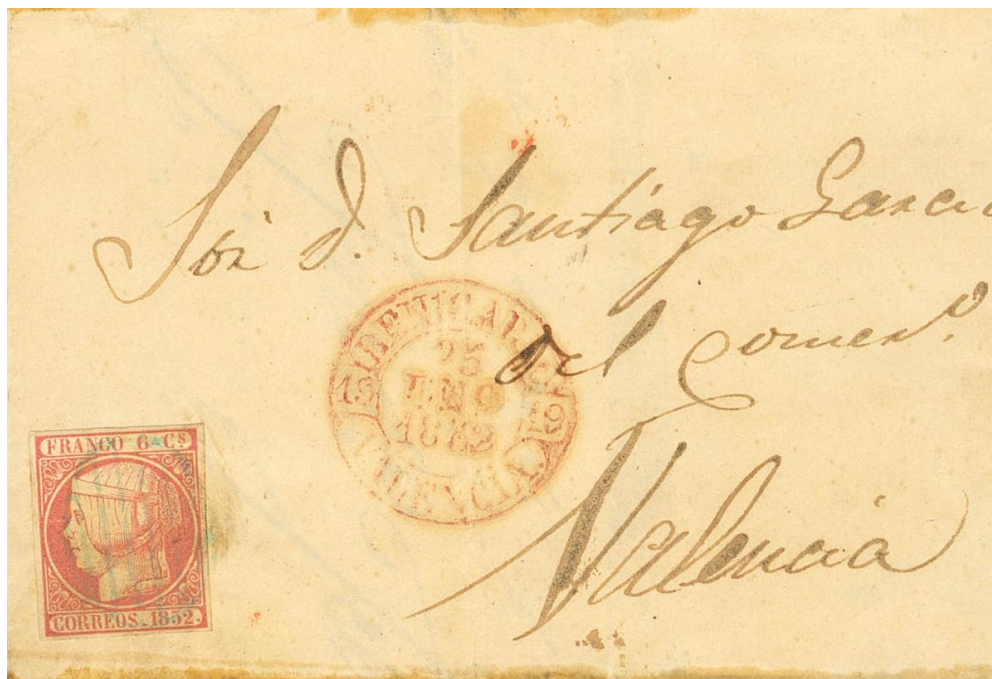 Sor. d. Santiago Garcia
del Comer.º
Valencia
BENICARLO
25
ENO
1852
VALENCIA
FRANCO 6 Cs
CORREOS. 1852.